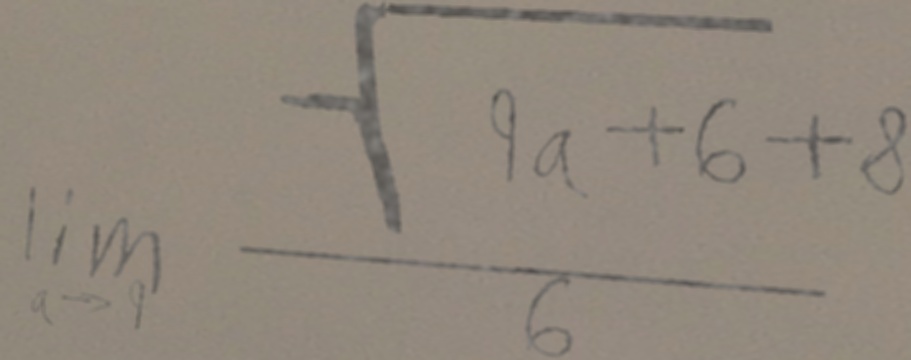 lim_{a \to 9} \frac{-\sqrt{9a+6}+8}{6}